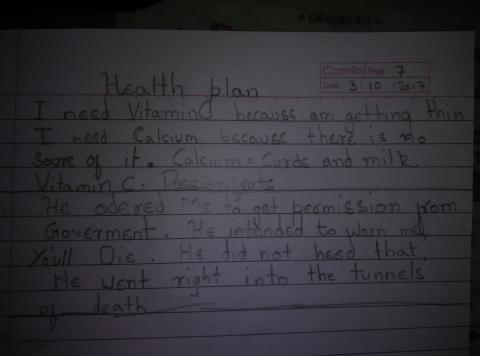 GRADES K-3
Camlin Page 7
Date 3/10/2017
Health plan
I need Vitamin C because am getting thin
I need Calcium because there is no
soure of it. Calcium = Curds and milk.
Vitamin C: Passionfruits
He odered Me to get permission from
Goverment. He intended to warn me,
You'll Die. He did not heed that.
He went right into the tunnels
of death